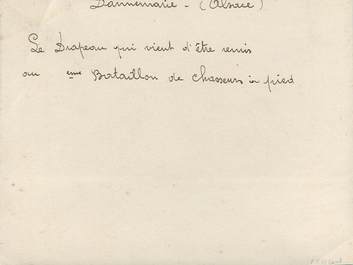 Dannemarie - (Alsace)
Le Drapeau qui vient d'être remis
au eme Bataillon de chasseurs à pied